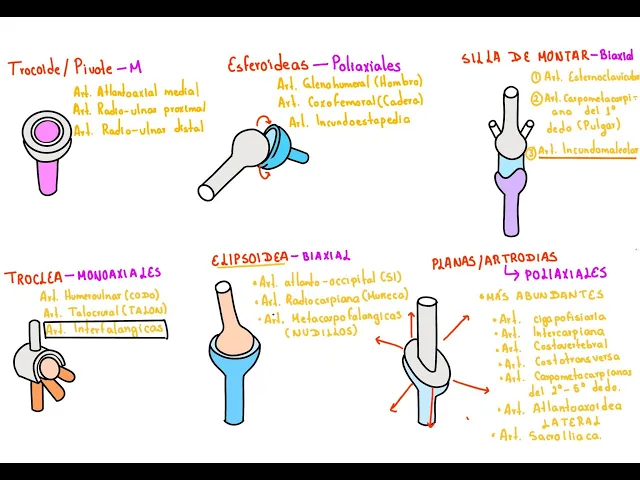 TROCOIDE/PIVOTE - M
Art. Atlantoaxial medial
Art. Radio-ulnar proximal
Art. Radio-ulnar distal
ESFEROIDEAS - POLIAXIALES
Art. Glenohumeral (Hombro)
Art. Coxofemoral (Cadera)
Art. Incundoestapedia
SILLA DE MONTAR - Biaxial
① Art. Esternoclavicular
② Art. Carpometacarpi-
ana del 1º
dedo (Pulgar)
③ Art. Incundomaleolar
TROCLEA - MONOAXIALES
Art. Humeroulnar (CODO)
Art. Talocrural (TALON)
Art. Interfalangicas
ELIPSOIDEA - BIAXIAL
• Art. atlanto-occipital (SI)
• Art. Radiocarpiana (Muñeca)
• Art. Metacarpofalangicas
(NUDILLOS)
PLANAS/ARTRODIAS
↳ POLIAXIALES
• MÁS ABUNDANTES
• Art. cigapofisiaria
• Art. Intercarpiana
• Art. Costovertebral
• Art. Costotransversa
• Art. Carpometacarpianas
del 2º-5º dedo.
• Art. Atlantoaxoidea
LATERAL
• Art. Sacroiliaca.